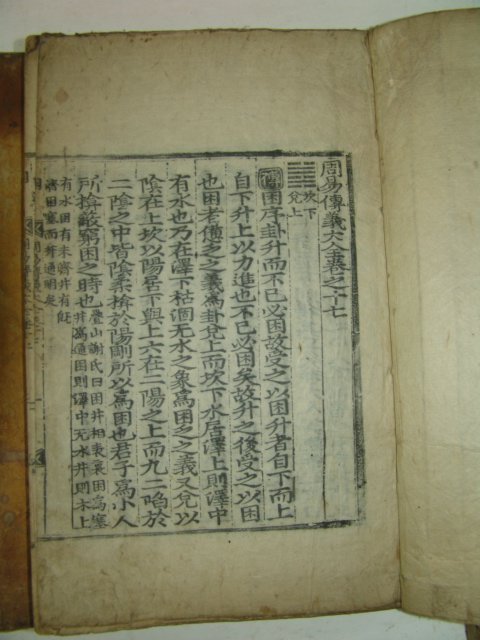 周易傳義大全卷之十七
坎下
兌上
傳困序卦升而不已必困故受之以困升者自下而上
自下升上以力進也不已必困矣故升之後受之以困
也困者憊乏之義爲卦兌上而坎下水居澤上則澤中
有水也乃在澤下枯涸无水之象爲困乏之義又兌以
陰在上坎以陽居下與上六在二陽之上而九二陷於
二陰之中皆陰柔揜於陽剛所以爲困也君子爲小人
所揜蔽窮困之時也疊山謝氏曰困井相表裏困爲塞
井爲通困則澤中无水井則木上
有水困有未濟井有旣
濟困塞而井通明矣